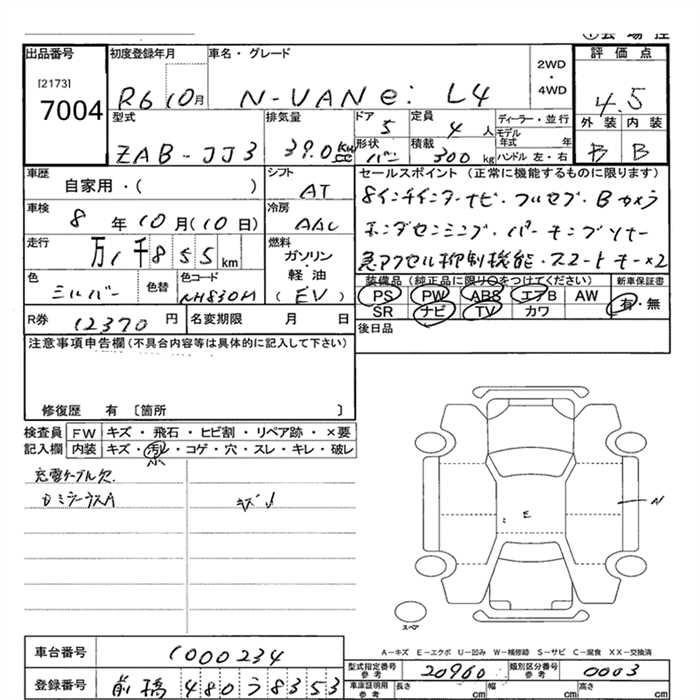 出品番号
[2173]
7004
初度登録年月
R6 10月
車名・グレード
N-VAN e: L4
2WD
・
4WD
評価点
4.5
外装 内装
B B
型式
ZAB-JJ3
排気量
39.0 KW
cc
ドア
5
形状
バン
定員
4 人
積載
300 kg
ディーラー・並行
モデル
年式 年
ハンドル 左・右
車歴
自家用・( )
シフト
AT
車検
8 年 10 月(10 日)
冷房
AAC
走行
万 1 千 855 km
燃料
ガソリン
・
軽油
(EV)
色
シルバー
色替
色コード
NH830M
R券
12370 円
名変期限 月 日
セールスポイント (正常に機能するものに限ります)
8インチインターナビ・フルセグ・Bカメラ
ホンダセンシング・パーキングソナー
急アクセル抑制機能・スマートキー×2
装備品 (純正品に限り○をつけてください)
PS PW ABS エアB AW
SR ナビ TV カワ
新車保証書
有・無
後日品
注意事項申告欄(不具合内容等は具体的に記入して下さい)
修復歴 有 〔箇所 〕
検査員
記入欄
FW キズ・飛石・ヒビ割・リペア跡・×要
内装 キズ・汚レ・コゲ・穴・スレ・キレ・破レ
小
充電ケーブル欠
キズ小
E
N
スペア
A-キズ E-エクボ U-凹み W-補修跡 S-サビ C-腐食 XX-交換済
車台番号
1000234
登録番号
前橋 480う8353
型式指定番号
参考
20960
類別区分番号
参考
0003
車庫証明用
参考
長さ cm 幅 cm 高さ cm